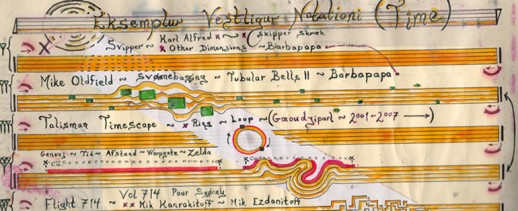 Eksemplar Vesttigur Notationi (Time)
Svipper ~ Karl Alfred x ~ x Skipper Skræk
x Other Dimensions ~ Barbapapa
Mike Oldfield ~ Svømebasning ~ Tubular Bells II ~ Barbapapa
Talisman Timescape ~ x Ring ~ Loop ~ ( ~ 2001-2007
Genvej ~ Tid ~ Afstand ~ Warpgate ~ Zelda
Vol 714 Pour Sydney
Flight 714 ~ xx Mik Kanrokitoff ~ Mik Ezdanitoff